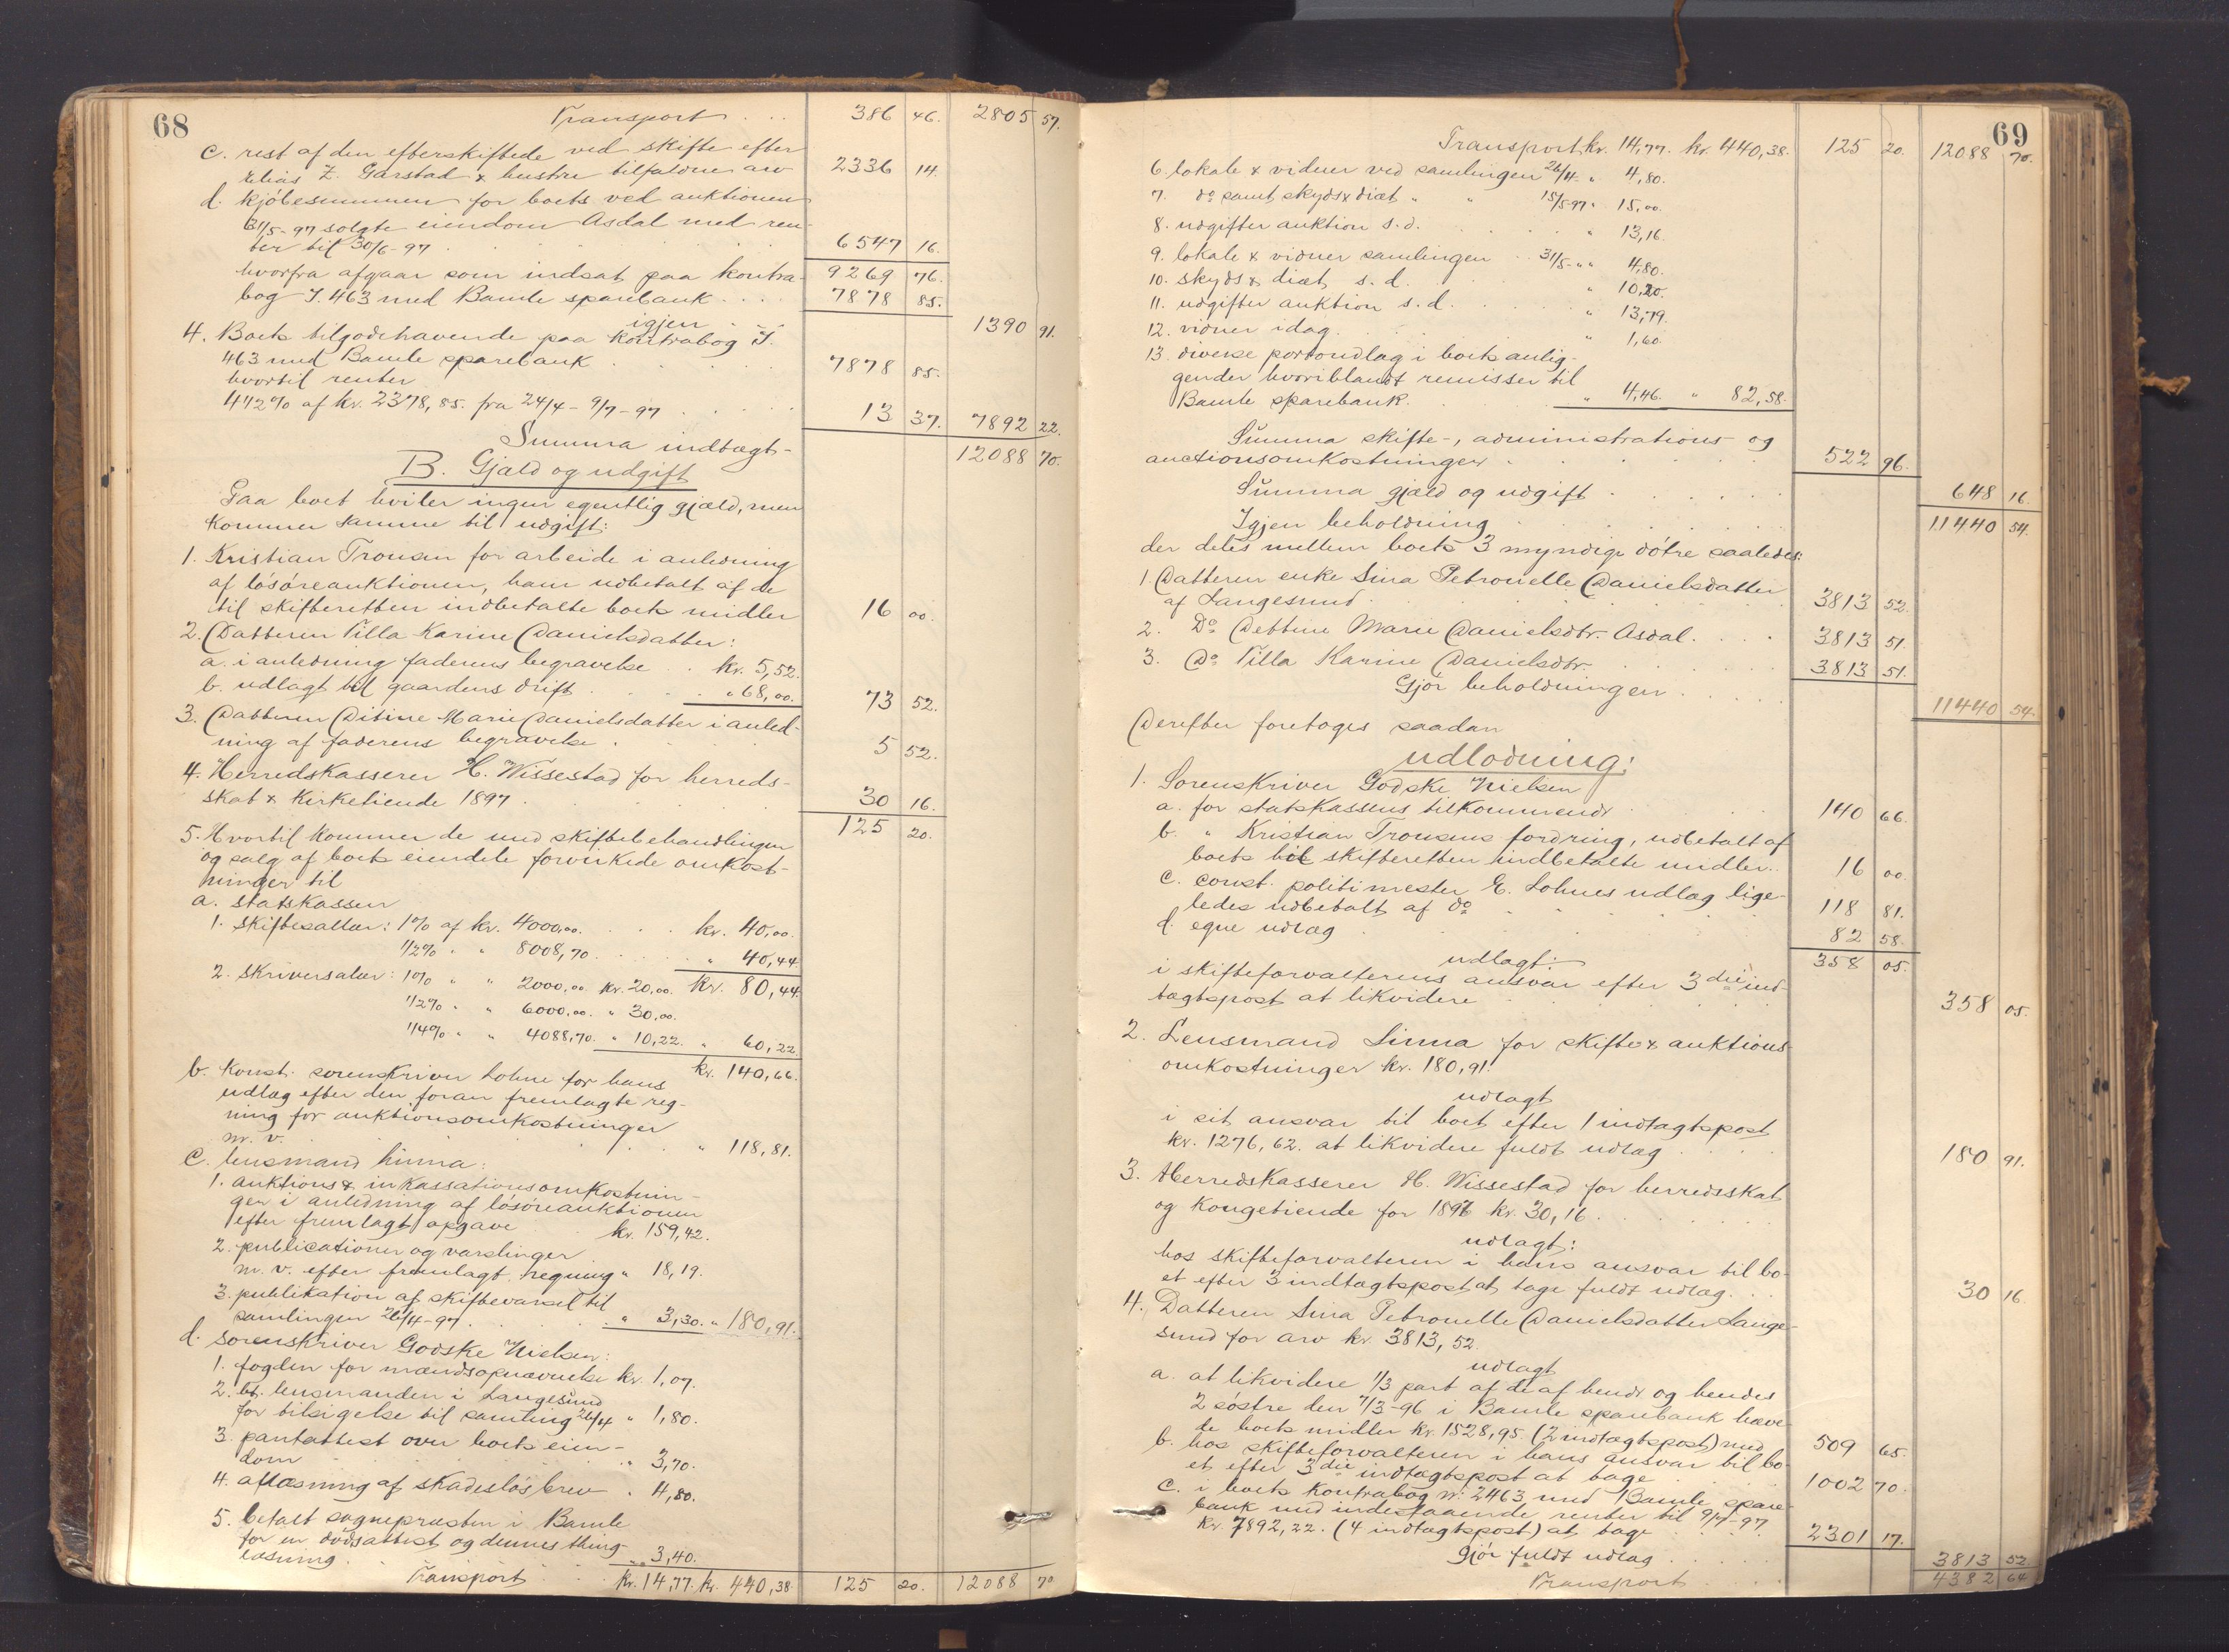 68
Transport . . . 386 46. 2805 57.
c. rest af den efterskiftede ved skifte efter
Elias Z. Garstad & hustru tilfaldne arv 2336 14.
d. kjöbesummen for boets ved auktionen
31/5-97 solgte eiendom Asdal med ren-
ter til 30/6-97 . . . 6547 16.
hvorfra afgaar som indsat paa kontra- 9269 76.
bog I. 463 med Bamle sparebank . . . . 7878 85.
igjen . . . 1390 91.
4. Boets tilgodehavende paa kontrabog I.
463 med Bamle sparebank . . . 7878 85.
hvortil renter
4 1/2 % af kr. 2378,85. fra 24/4 - 9/7-97 . . . 13 37. 7892 22.
Summa indtægt- 12088 70.
B. Gjæld og udgift
Paa boet hviler ingen egentlig gjæld, men
kommer samme til udgift:
1. Kristian Tronsen for arbeide i anledning
af lösöreauktionen, ham udbetalt af de
til skifteretten indbetalte boets midler 16 00.
2. Datteren Tilla Karine Danielsdatter:
a. i anledning faderens begravelse . . kr. 5,52.
b. udlagt til gaardens drift . . . " 68,00. 73 52.
3. Datteren Ditine Marie Danielsdatter i anled-
ning af faderens begravelse . 5 52.
4. Herredskasserer H. Wissestad for herreds-
skat & kirketiende 1897 . . . 30 16.
125 20.
5. Hvortil kommer de med skiftebehandlingen
og salg af boets eiendele forvirkede omkost-
ninger til
a. statskassen
1. Skiftesallar: 1% af kr. 4000,00. . . . kr. 40,00.
1/2% " " 8008,70 . . . " 40,44.
2. Skriversalar: 1% " " 2000,00 kr. 20,00. kr. 80,44.
1/2% " " 6000,00. " 30,00.
1/4% " " 4088,70. " 10,22. " 60,22
kr. 140,66.
b. Konst. sorenskriver Lohne for hans
udlæg efter den foran fremlagte reg-
ning for auktionsomkostninger
m. v. . . . " 118,81.
c. lensmand Linna:
1. auktions & inkassationsomkostnin-
ger i anledning af lösöreauktionen
efter fremlagt opgave . kr. 159,42.
2. publicationer og varslinger
m. v. efter fremlagt regning " 18,19.
3. publikation af skiftevarsel til
samlingen 26/4-97 . . . " 3,30. " 180,91.
d. sorenskriver Godske Nielsen:
1. fogden for mændsopnævnelse kr. 1,07.
2. bt. lensmanden i Langesund
for tilsigelse til samling 26/4 " 1,80.
3. pantattest over boets eien-
dom " 3,70.
4. aflæsning af skadeslösbrev " 4,80.
5. betalt sognepresten i Bamle
for en dödsattest og dennes thing-
læsning . . . " 3,40.
Transport . . . kr. 14,77. kr. 440,38. 125 20. 12088 70
69
Transport kr. 14,77. kr. 440,38. 125 20. 12088 70.
6. lokale & vidner ved samlingen 26/4 - " 4,80.
7. do samt skyds & diæt " " 15/5 97 " 15,00.
8. udgifter auktion s. d. . . . " 13,16.
9. lokale & vidner samlingen . . 31/5 - " " 4,80.
10. skyds & diæt s. d. . . . " 10,20.
11. udgifter auktion s. d. . . . " 13,79.
12. vidner idag . . . " 1,60.
13. diverse portoudlæg i boets anlig-
gender hvoriblandt remisser til
Bamle sparebank . . . " 4,46. " 82,58.
Summa skifte-, administrations- og
auctionsomkostninger . . . 522 96.
Summa gjæld og udgift . . . 648 16.
Igjen beholdning . . . 11440 54.
der deles mellem boets 3 myndige dötre saaledes:
1. Datteren enke Sina Petronelle Danielsdatter
af Langesund . . . 3813 52.
2. Do Dettine Marie Danielsdtr. Asdal . . . 3813 51.
3. Do Tilla Karine Danielsdtr. . . . 3813 51.
Gjör beholdningen . . . 11440 54.
Derefter foretoges saadan
udlodning:
1. Sorenskriver Godske Nielsen
a. for statskassens tilkommende . . . 140 66.
b. " Kristian Tronsens fordring, udbetalt af
boets til skifteretten indbetalte midler . . 16 00.
c. const. politimester E. Lohnes udlæg lige-
ledes udbetalt af do . . . 118 81.
d. egne udlæg . . . 82 58.
udlagt: 358 05.
i skifteforvalterens ansvar efter 3die ind-
tægtspost at likvidere . . . 358 05.
2. Lensmand Linna for skifte & auktions-
omkostninger kr. 180,91.
udlagt
i sit ansvar til boet efter 1 indtægtspost
kr. 1276,62. at likvidere fuldt udlæg . . . 180 91.
3. Herredskasserer H. Wissestad for herredsskat
og kongetiende for 1896 kr. 30,16. . . .
udlagt:
hos skifteforvalteren i hans ansvar til bo-
et efter 3 indtægtspost at tage fuldt udlæg . . . 30 16
4. Datteren Sina Petronelle Danielsdatter Lange-
sund for arv kr. 3813,52.
udlagt
a. at likvidere 1/3 part af de af hende og hendes
2 söstre den 7/3-96 i Bamle sparebank hæve-
de boets midler kr. 1528,95. (2 indtægtspost) med 509 65.
b. hos skifteforvalteren i hans ansvar til bo-
et efter 3die indtægtspost at tage . . . 1002 70.
c. i boets kontrabog nr. 2463 med Bamle spare-
bank med indestaaende renter til 9/7-97
kr. 7892,22. (4 indtægtspost) at tage . . . 2301 17.
gjör fuldt udlæg . . . 3813 52
Transport . . . 4382 64